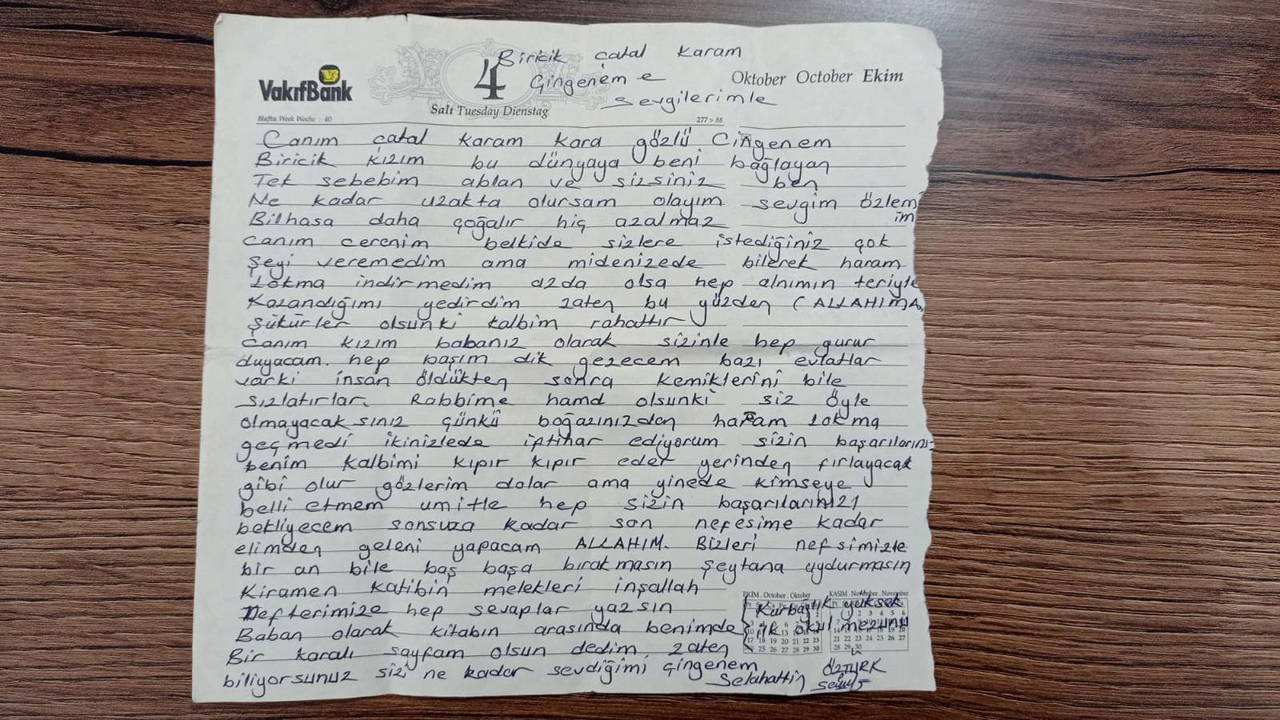 Biricik çatal karam
VakıfBank 4 Çingeneme Oktober October Ekim
Salı Tuesday Dienstag sevgilerimle
Hafta Week Woche : 40 277 > 88
Canım çatal karam kara gözlü Çingenem
Biricik kızım bu dünyaya beni bağlayan
Tek sebebim ablan ve sizsiniz ben
Ne kadar uzakta olursam olayım sevgim özlem
Bilhasa daha çoğalır hiç azalmaz im
canım cerenim belkide sizlere istediğiniz çok
şeyi veremedim ama midenizede bilerek haram
Lokma indirmedim azda olsa hep alnımın teriyle
Kazandığımı yedirdim zaten bu yüzden (ALLAHIMA
şükürler olsunki kalbim rahattır
canım kızım babanız olarak sizinle hep gurur
duyacam. hep başım dik gezecem bazı evlatlar
varki insan öldükten sonra kemiklerini bile
sızlatırlar. Rabbime hamd olsunki siz öyle
olmayacaksınız çünkü boğazınızdan haram Lokma
geçmedi ikinizlede iptihar ediyorum sizin başarılarını
benim kalbimi kıpır kıpır eder yerinden fırlayacak
gibi olur gözlerim dolar ama yinede kimseye
belli etmem umitle hep sizin başarılarınızı
bekliyecem sonsuza kadar son nefesime kadar
elimden geleni yapacam ALLAHIM. Bizleri nefsimizle
bir an bile baş başa bırakmasın şeytana uydurmasın
Kiramen katibin melekleri inşallah
Defterimize hep sevaplar yazsın
EKİM . October . Oktober KASIM . November . November
Kurbağlık yüksek
Baban olarak kitabın arasında benimde ilk okul mezunu
Bir karalı sayfam olsun dedim zaten
biliyorsunuz sizi ne kadar sevdiğimi çingenem
Selahattin ÖZTÜRK